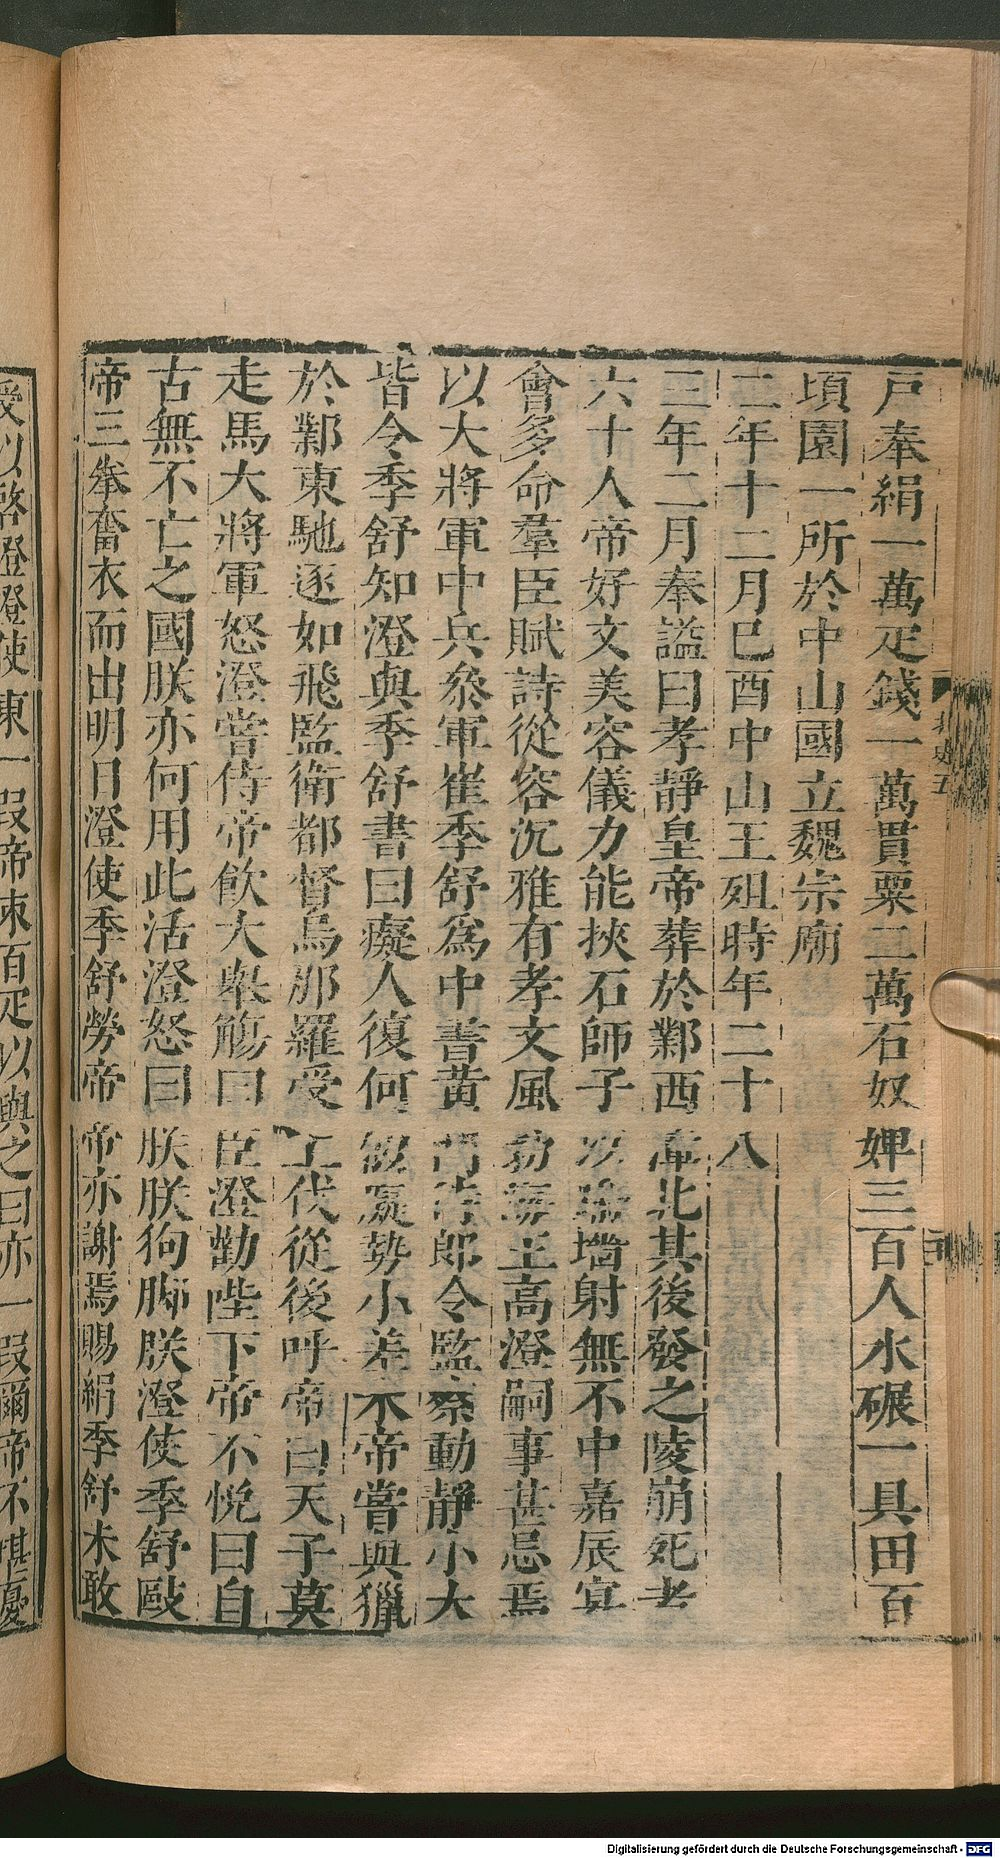 戸奉絹一萬疋錢一萬貫粟二萬石奴婢三百人水碾一具田百
頃園一所於中山國立魏宗廟
二年十二月己酉中山王殂時年二十八
三年二月奉謚曰孝靜皇帝葬於鄴西漳北其後發之陵崩死者
六十人帝好文美容儀力能挾石師子以踰墻射無不中嘉辰宴
會多命羣臣賦詩從容沉雅有孝文風勃海王高澄嗣事甚忌焉
以大將軍中兵叅軍崔季舒爲中書黄門侍郎令監察動靜小大
皆令季舒知澄與季舒書曰癡人復何似癡勢小差未帝嘗與獵
於鄴東馳逐如飛監衛都督烏那羅受工伐從後呼帝曰天子莫
走馬大將軍怒澄嘗侍帝飮大舉觴曰臣澄勸陛下帝不悅曰自
古無不亡之國朕亦何用此活澄怒曰朕朕狗脚朕澄使季舒毆
帝三拳奮衣而出明日澄使季舒勞帝帝亦謝焉賜絹季舒未敢
受以啓澄澄使東一段帝束百疋以與之曰亦一段爾帝不堪憂
Digitalisierung gefördert durch die Deutsche Forschungsgemeinschaft - DFG